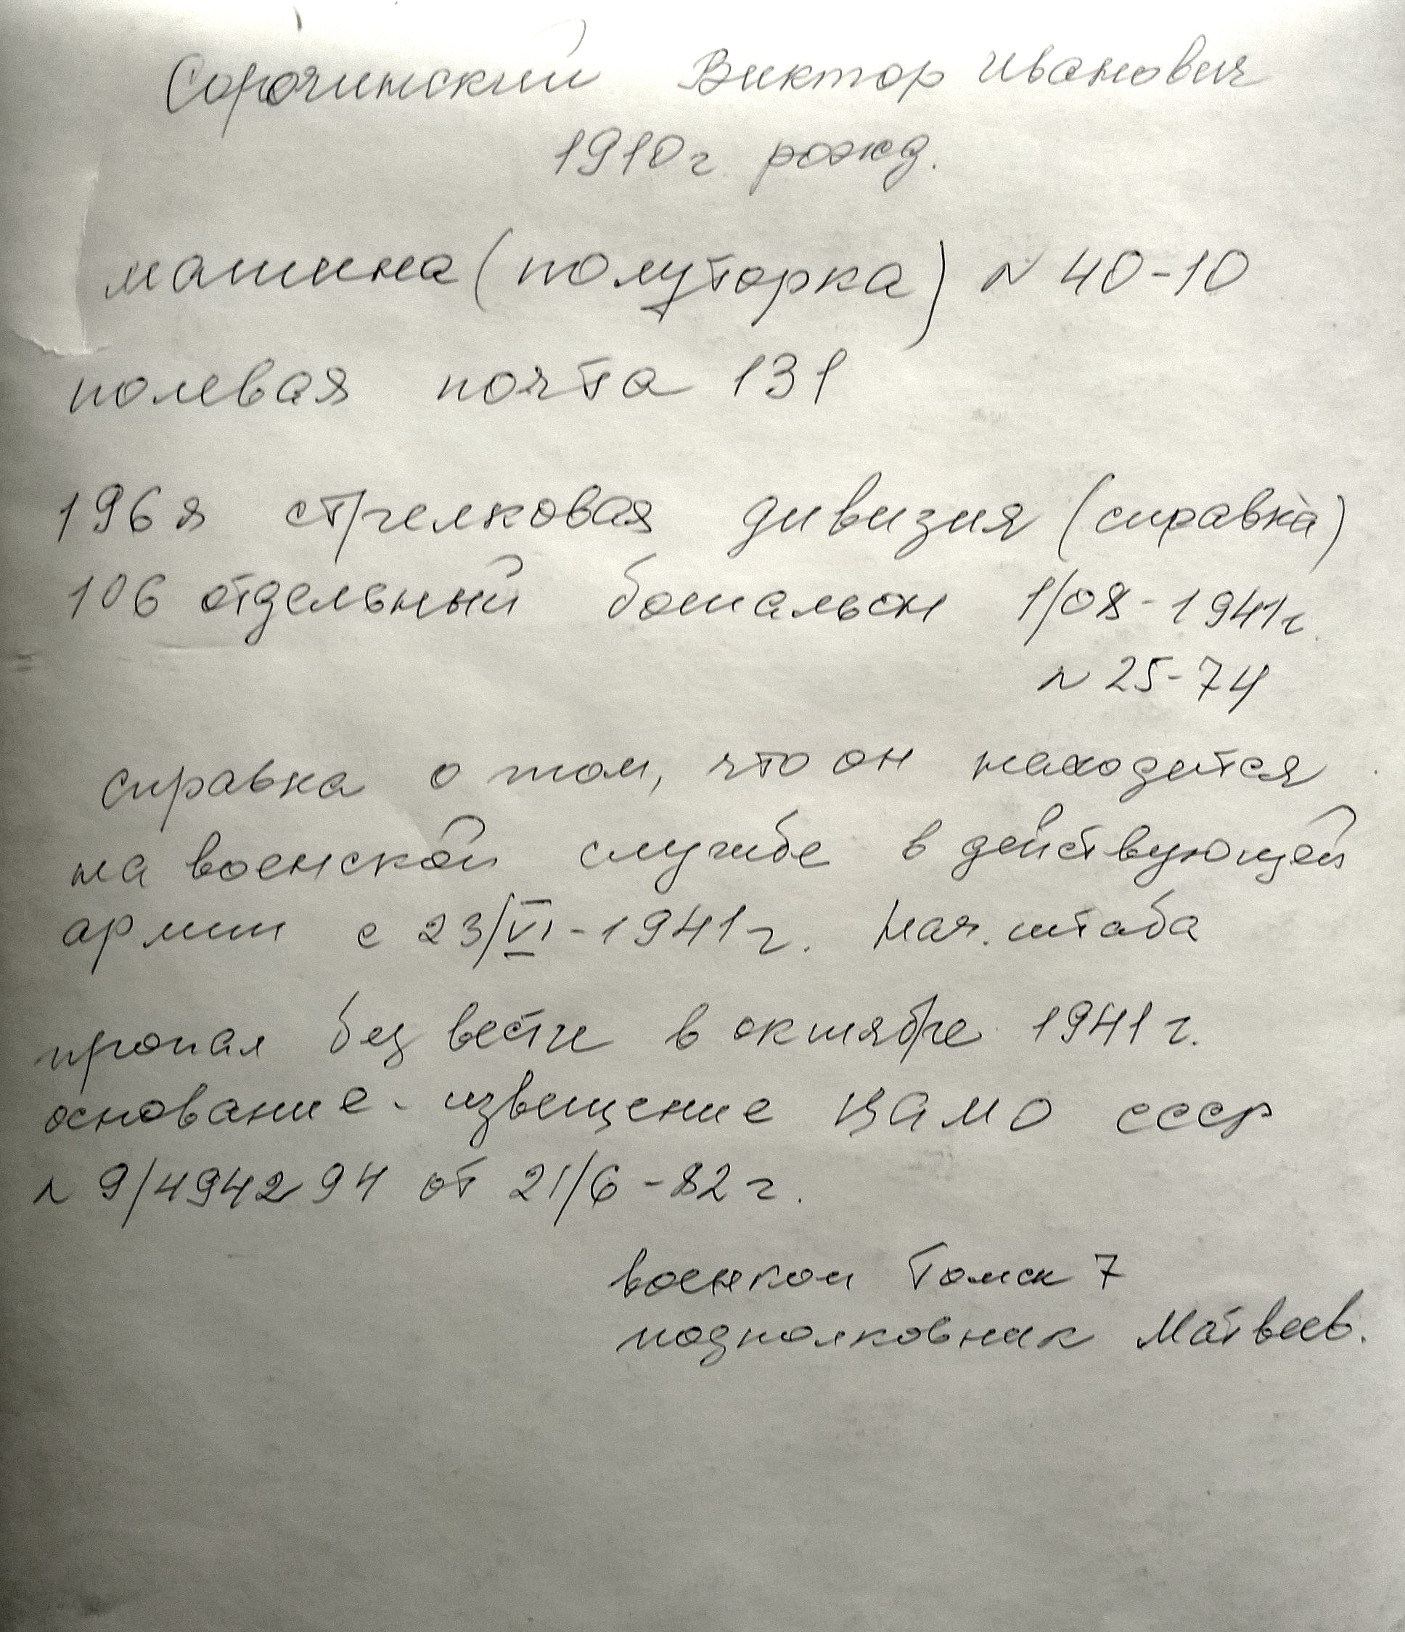 Сорочинский Виктор Иванович
1910 г. рожд.
машина (полуторка) N 40-10
полевая почта 131
196 я стрелковая дивизия (справка)
106 отдельный батальон 1/08-1941 г.
N 25-74
справка о том, что он находится
на военской службе в действующей
армии с 23/VI-1941 г. Нач. штаба
пропал без вести в октябре 1941 г.
основание - извещение ЦАМО СССР
N 9/494294 от 21/6-82 г.
военком Томск 7
подполковник Матвеев.